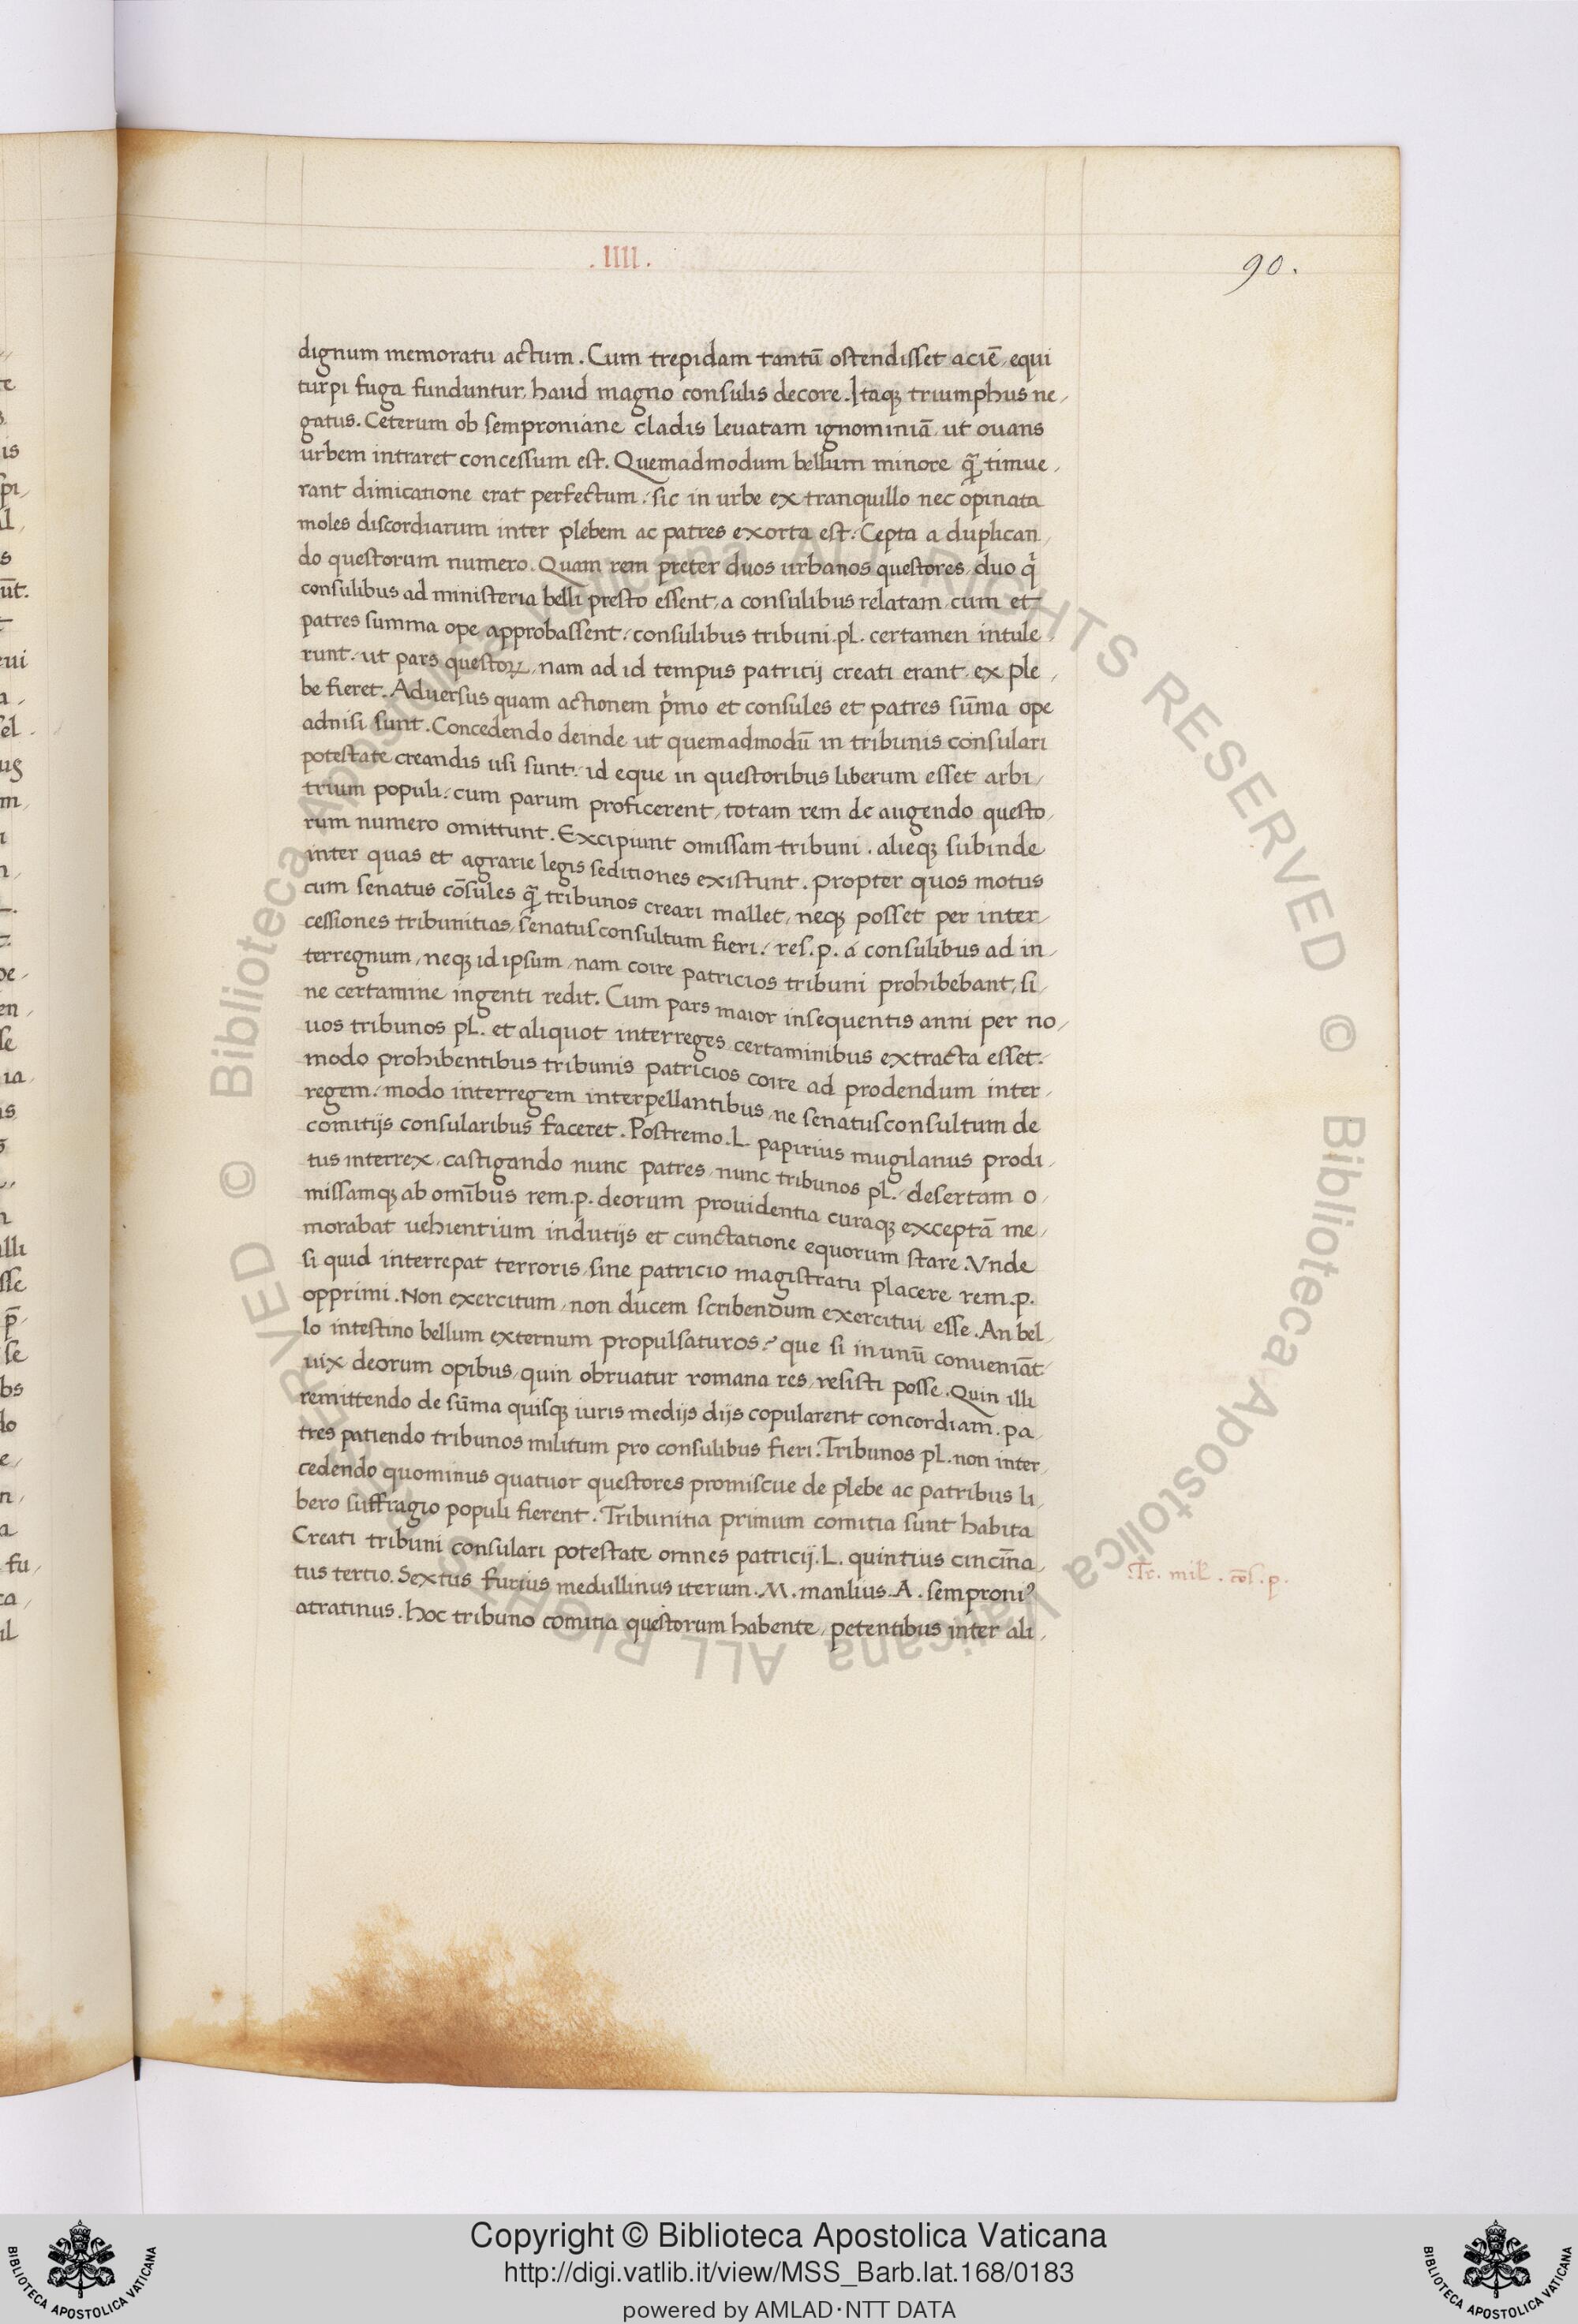 .IIII.
90.
dignum memoratu actum. Cum trepidam tantū ostendisset aciē, equi
turpi fuga funduntur, haud magno consulis decore. Itaqꝫ triumphus ne,
gatus. Ceterum ob semproniane cladis levatam ignominiā, ut ovans
urbem intraret concessum est. Quemadmodum bellum minore q̄ timue,
rant dimicatione erat perfectum: sic in urbe ex tranquillo nec opinata
moles discordiarum inter plebem ac patres exorta est: Cepta a duplican,
do questorum numero. Quam rem preter duos urbanos questores, duo q̇
consulibus ad ministeria belli presto essent, a consulibus relatam, cum et
patres summa ope approbassent: consulibus tribuni. pl. certamen intule,
runt: ut pars questoꝝ, nam ad id tempus patricij creati erant, ex ple,
be fieret. Adversus quam actionem p̓mo et consules et patres sūma ope
adnisi sunt. Concedendo deinde ut quemadmodū in tribunis consulari
potestate creandis usi sunt: id eque in questoribus liberum esset arbi,
trium populi: cum parum proficerent, totam rem de augendo questo,
rum numero omittunt. Excipiunt omissam tribuni. alieqꝫ subinde
inter quas et agrarie legis seditiones existunt. Propter quos motus
cum senatus cōsules q̄ tribunos creari mallet, neqꝫ posset per inter,
cessiones tribunitias, senatusconsultum fieri: res. p. a consulibus ad in,
terregnum, neqꝫ id ipsum, nam coire patricios tribuni prohibebant, si,
ne certamine ingenti redit. Cum pars maior insequentis anni per no,
uos tribunos pl. et aliquot interreges certaminibus extracta esset:
modo prohibentibus tribunis patricios coire ad prodendum inter,
regem: modo interregem interpellantibus, ne senatusconsultum de
comitijs consularibus faceret. Postremo. L. papirius mugilanus prodi,
tus interrex, castigando nunc patres, nunc tribunos pl: desertam o,
missamqꝫ ab omībus rem. p. deorum providentia curaqꝫ exceptā me,
morabat vehientium indutijs et cunctatione equorum stare. Vnde
si quid interrepat terroris, sine patricio magistratu placere rem. p.
opprimi. Non exercitum, non ducem scribendum exercitui esse. An bel,
lo intestino bellum externum propulsaturos? que si in unū conveniāt,
uix deorum opibus, quin obruatur romana res, resisti posse. Quin illi
remittendo de sūma quisqꝫ iuris medijs dijs copularent concordiam. pa,
tres patiendo tribunos militum pro consulibus fieri. Tribunos pl. non inter,
cedendo quominus quatuor questores promiscue de plebe ac patribus li,
bero suffragio populi fierent. Tribunitia primum comitia sunt habita
Creati tribuni consulari potestate omnes patricij. L. quintius cincīna,
tus tertio. Sextus furius medullinus iterum. M. manlius. A. semproniꝰ
atratinus. Hoc tribuno comitia questorum habente, petentibus inter ali,
Tr. mil. cōs. p.
© Biblioteca Apostolica Vaticana ALL RIGHTS RESERVED © Biblioteca Apostolica Vaticana ALL RIGHTS RESERVED
Copyright © Biblioteca Apostolica Vaticana
http://digi.vatlib.it/view/MSS_Barb.lat.168/0183
powered by AMLAD·NTT DATA
BIBLIOTECA APOSTOLICA VATICANA
BIBLIOTECA APOSTOLICA VATICANA